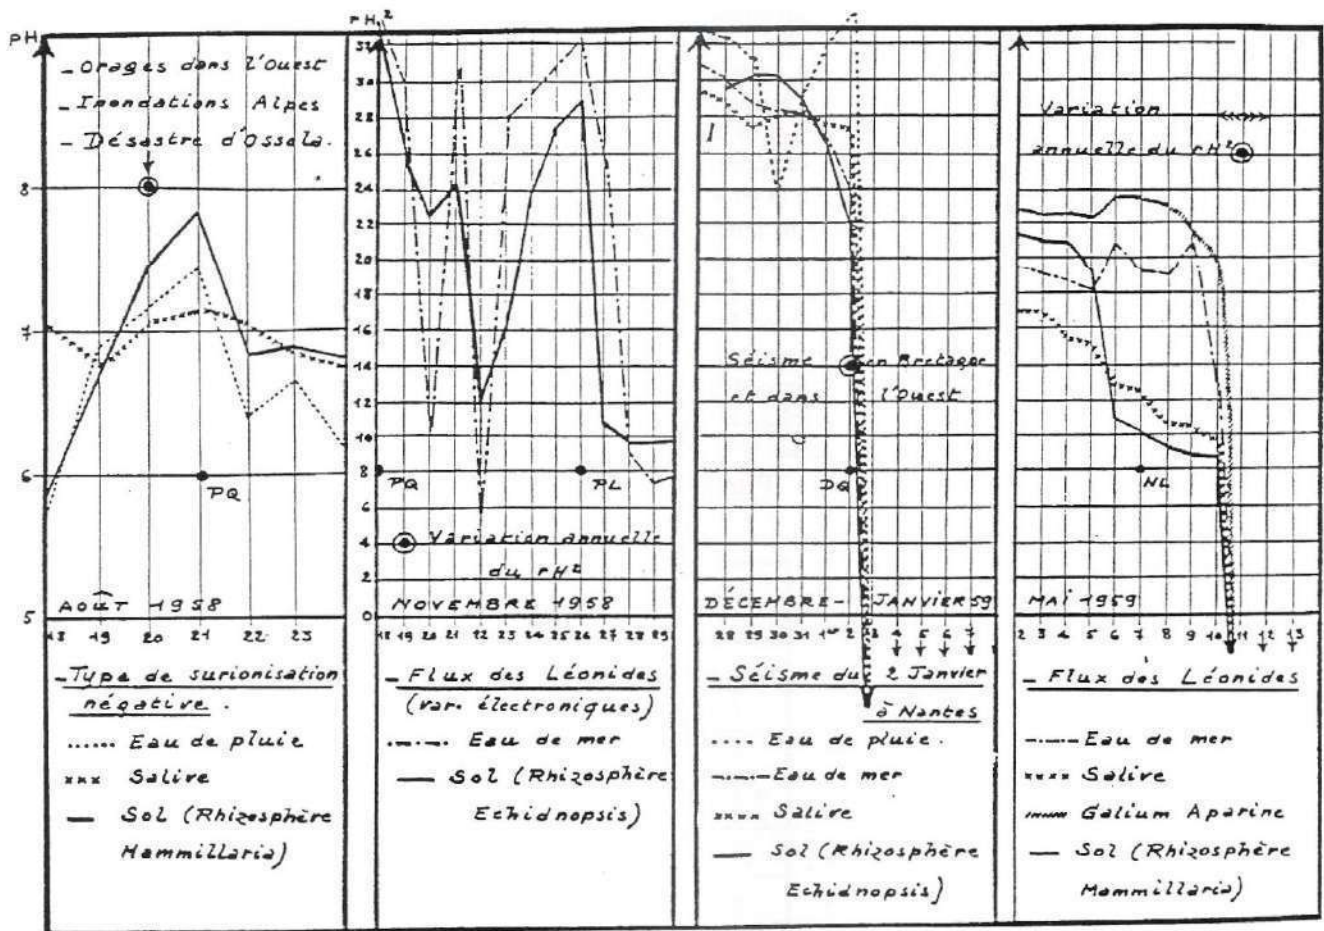 PH
8
7
6
5
- Orages dans l'Ouest
- Inondations Alpes
- Désastre d'Ossola.
PQ
AOÛT 1958
18 19 20 21 22 23
- Type de surionisation
négative.
...... Eau de pluie
xxx Salive
— Sol (Rhizosphère
Mammillaria)
rH²
32
30
28
26
24
22
20
18
16
14
12
10
8
6
4
2
0
PQ
PL
Variation annuelle
du rH²
NOVEMBRE 1958
18 19 20 21 22 23 24 25 26 27 28 29
- Flux des Léonides
(var. électroniques)
-.-.-. Eau de mer
— Sol (Rhizosphère
Echidnopsis)
Séisme en Bretagne
et dans l'Ouest
DQ
DÉCEMBRE - JANVIER 59
28 29 30 31 1er 2 3 4 5 6 7
- Séisme du 2 Janvier
à Nantes
.... Eau de pluie.
-.-.- Eau de mer
xxxx Salive
— Sol (Rhizosphère
Echidnopsis)
Variation
annuelle du rH²
NL
MAI 1959
2 3 4 5 6 7 8 9 10 11 12 13
- Flux des Léonides
-.-.- Eau de mer
xxxx Salive
Galium Aparine
— Sol (Rhizosphère
Mammillaria)